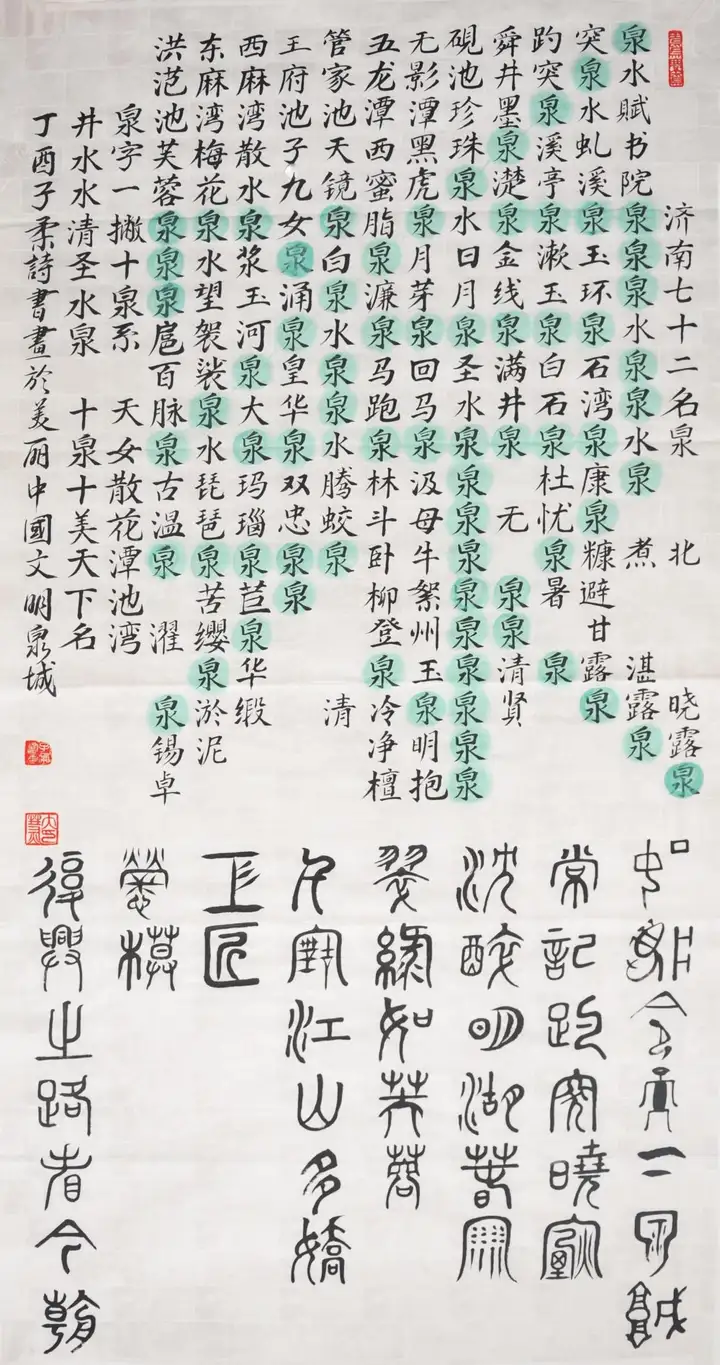 济南七十二名泉 北 晓露泉
泉水赋书院泉泉泉水泉泉水泉 煮 湛露泉
突泉水虬溪泉玉环泉石湾泉康泉糠避甘露泉
趵突泉溪亭泉漱玉泉白石泉杜忧泉暑 泉
舜井墨泉濋泉金线泉满井泉 无 泉泉清贤
砚池珍珠泉水日月泉圣水泉泉泉泉泉泉泉泉泉泉
无影潭黑虎泉月芽泉回马泉汲母牛絮州玉泉明抱
五龙潭西蜜脂泉濂泉马跑泉林斗卧柳登泉冷净檀
管家池天镜泉白泉水泉泉水腾蛟泉 清
王府池子九女泉涌泉皇华泉双忠泉泉
西麻湾散水泉浆玉河泉大泉玛瑙泉苣泉华缎
东麻湾梅花泉水望袈裟泉水琵琶泉苦缨泉淤泥
洪范池芙蓉泉泉泉扈百脉泉古温泉 濯 泉锡卓
泉字一撇十泉系 天女散花潭池湾
井水水清圣水泉 十泉十美天下名
丁酉子柔詩書畫於美丽中國文明泉城
常記趵突曉
沈醉明湖
如芙蓉
江山多嬌
匠
模
復興之路看今朝